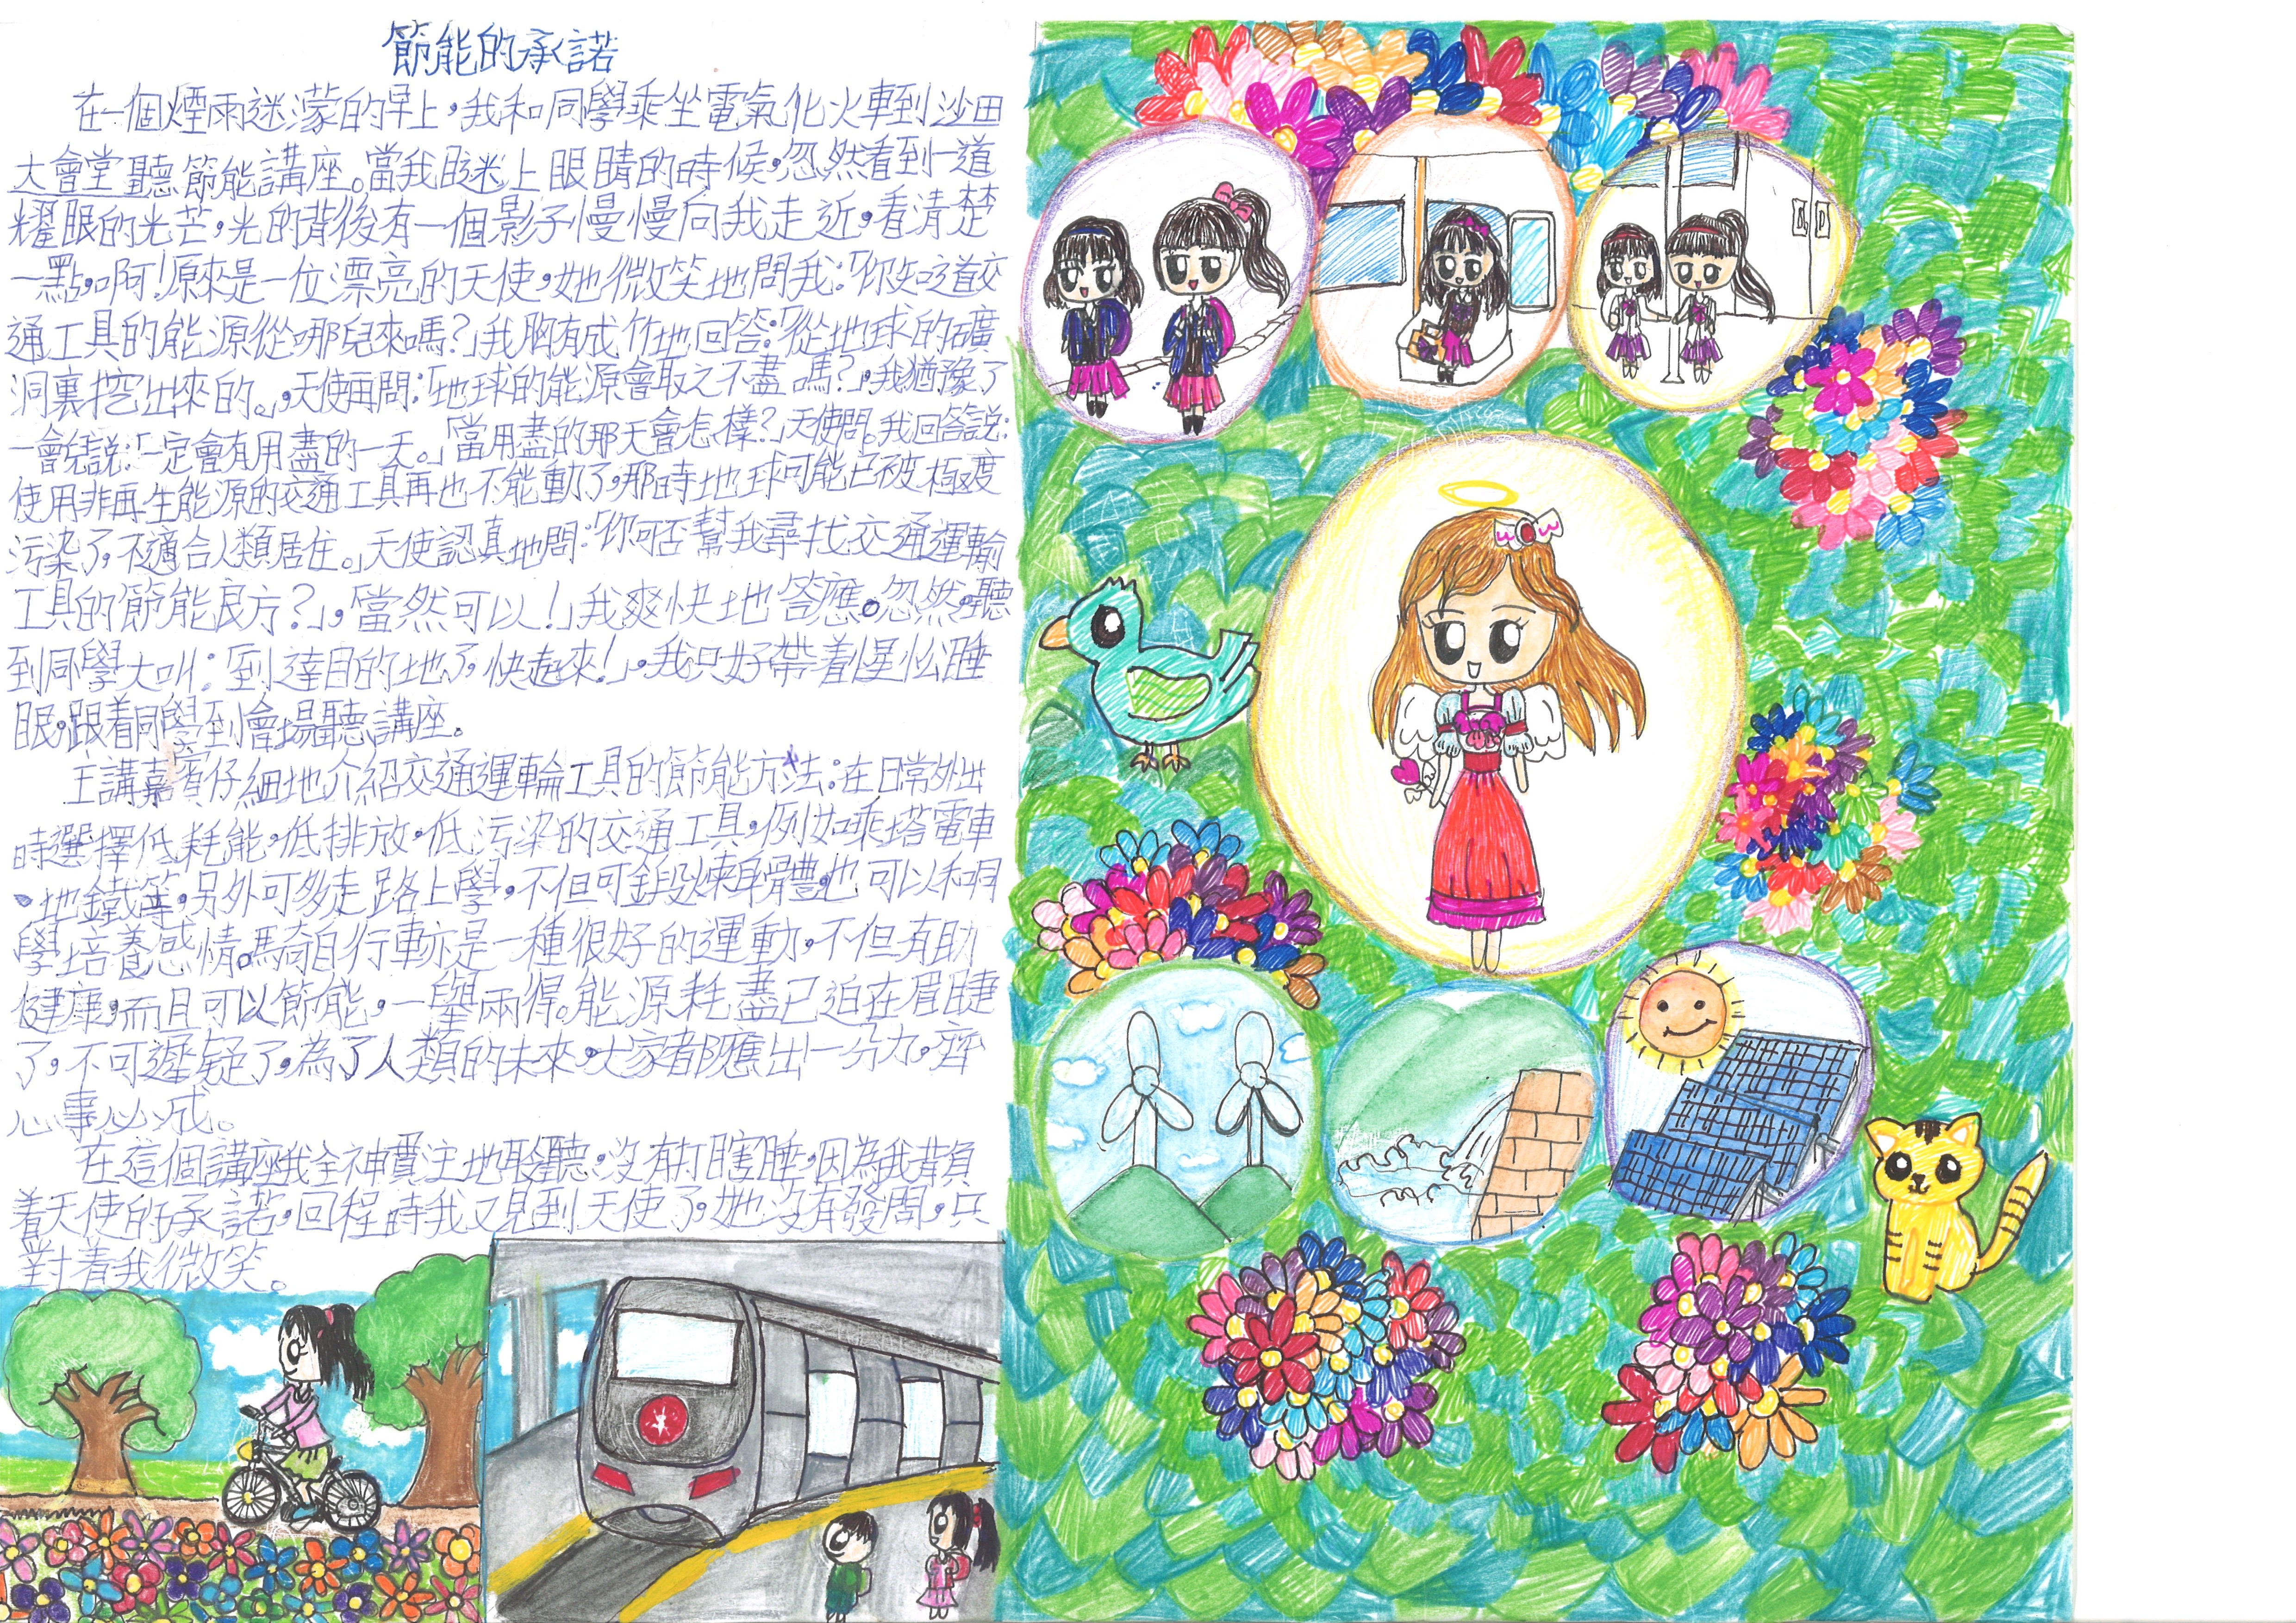 節能的承諾
在一個煙雨迷濛的早上，我和同學乘坐電氣化火車到沙田
大會堂聽節能講座。當我瞇上眼睛的時候，忽然看到一道
耀眼的光芒，光的背後有一個影子慢慢向我走近，看清楚
一點，啊！原來是一位漂亮的天使，她微笑地問我：「你知道交
通工具的能源從哪兒來嗎？」我胸有成竹地回答：「從地球的礦
洞裏挖出來的。」，天使再問：「地球的能源會取之不盡嗎？」，我猶豫了
一會兒說：「一定會有用盡的一天。」「當用盡的那天會怎樣？」天使問。我回答說：
使用非再生能源的交通工具再也不能動了，那時地球可能已被極度
污染了，不適合人類居住。」天使認真地問：「你可否幫我尋找交通運輸
工具的節能良方？」，「當然可以！」我爽快地答應。忽然，聽
到同學大叫：「到達目的地了，快起來！」，我只好帶着惺忪睡
眼，跟着同學到會場聽講座。
主講嘉賓仔細地介紹交通運輪工具的節能方法：在日常外出
時選擇低耗能，低排放，低污染的交通工具，例如乘搭電車
、地鐵等，另外可多走路上學，不但可鍛煉身體，也可以和同
學培養感情。騎自行車亦是一種很好的運動，不但有助
健康，而且可以節能，一舉兩得。能源耗盡已迫在眉睫
了，不可遲疑了，為了人類的未來，大家都應出一分力，齊
心事必成。
在這個講座我全神貫注地聆聽，沒有打瞌睡，因為我背負
着天使的承諾，回程時我又見到天使了，她沒有發問，只
對着我微笑。